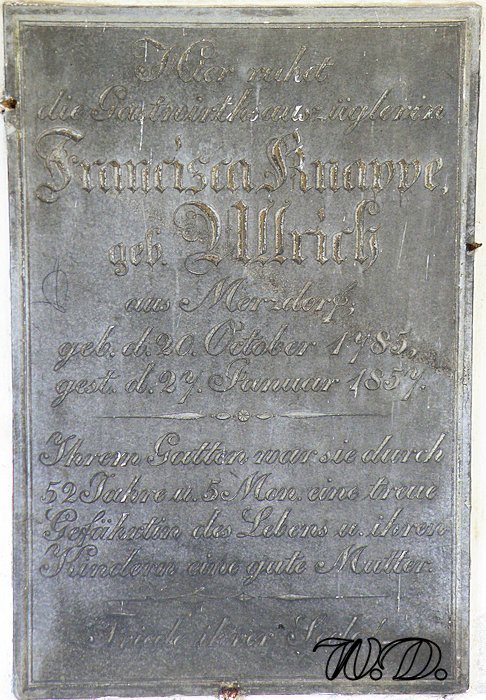 Hier ruhet
die Gastwirthsauszüglerin
Francisca Knappe,
geb. Ullrich
aus Merzdorf,
geb. d. 20. October 1785,
gest. d. 27. Januar 1857.
Ihrem Gatten war sie durch
52 Jahre u. 5 Mon. eine treue
Gefährtin des Lebens u. ihren
Kindern eine gute Mutter.
Friede ihrer
W.D.